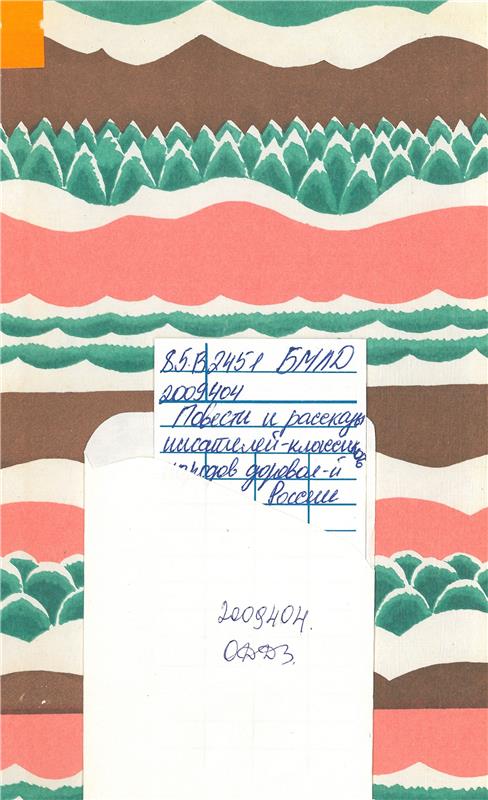 85.В 2451 БМЛД
2009404
Повести и рассказы
писателей-классиков
народов дореволю-й
России
2009404.
ОДДЗ.